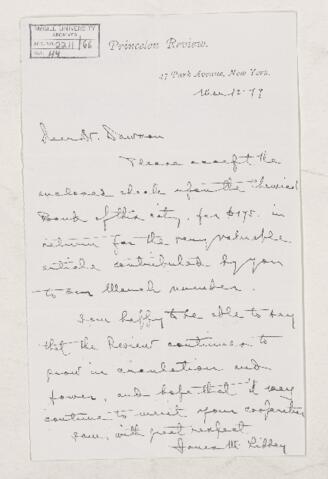 McGILL UNIVERSITY
ARCHIVES
ACC. NO. 2211/66
REF. 44
Princeton Review.
37 Park Avenue, New York.
Mar 12 - 79
Dear Dr. Dawson
Please accept the
enclosed check upon the
Bank of this city, for $175. in
return for the very valuable
article contributed by you
to our March number.
I am happy to be able to say
that the Review continues to
grow in circulation and
power, and hope that it may
continue to merit your cooperation
I am, with great respect
M. Libbey